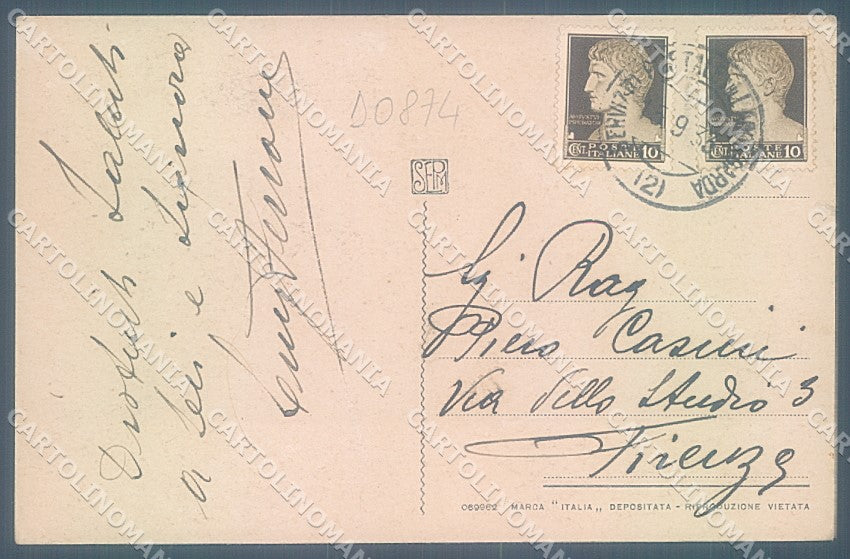 Distinti saluti
a Lei e Signora
D0874
SEPM
AUGUSTVS
IMPERATOR
POSTE
CENT. ITALIANE 10
POSTE
ITALIANE 10
9
(2)
Sig Rag
Piero Casini
Via dello Studio 3
Firenze
069962 MARCA "ITALIA„ DEPOSITATA - RIPRODUZIONE VIETATA
CARTOLINOMANIA